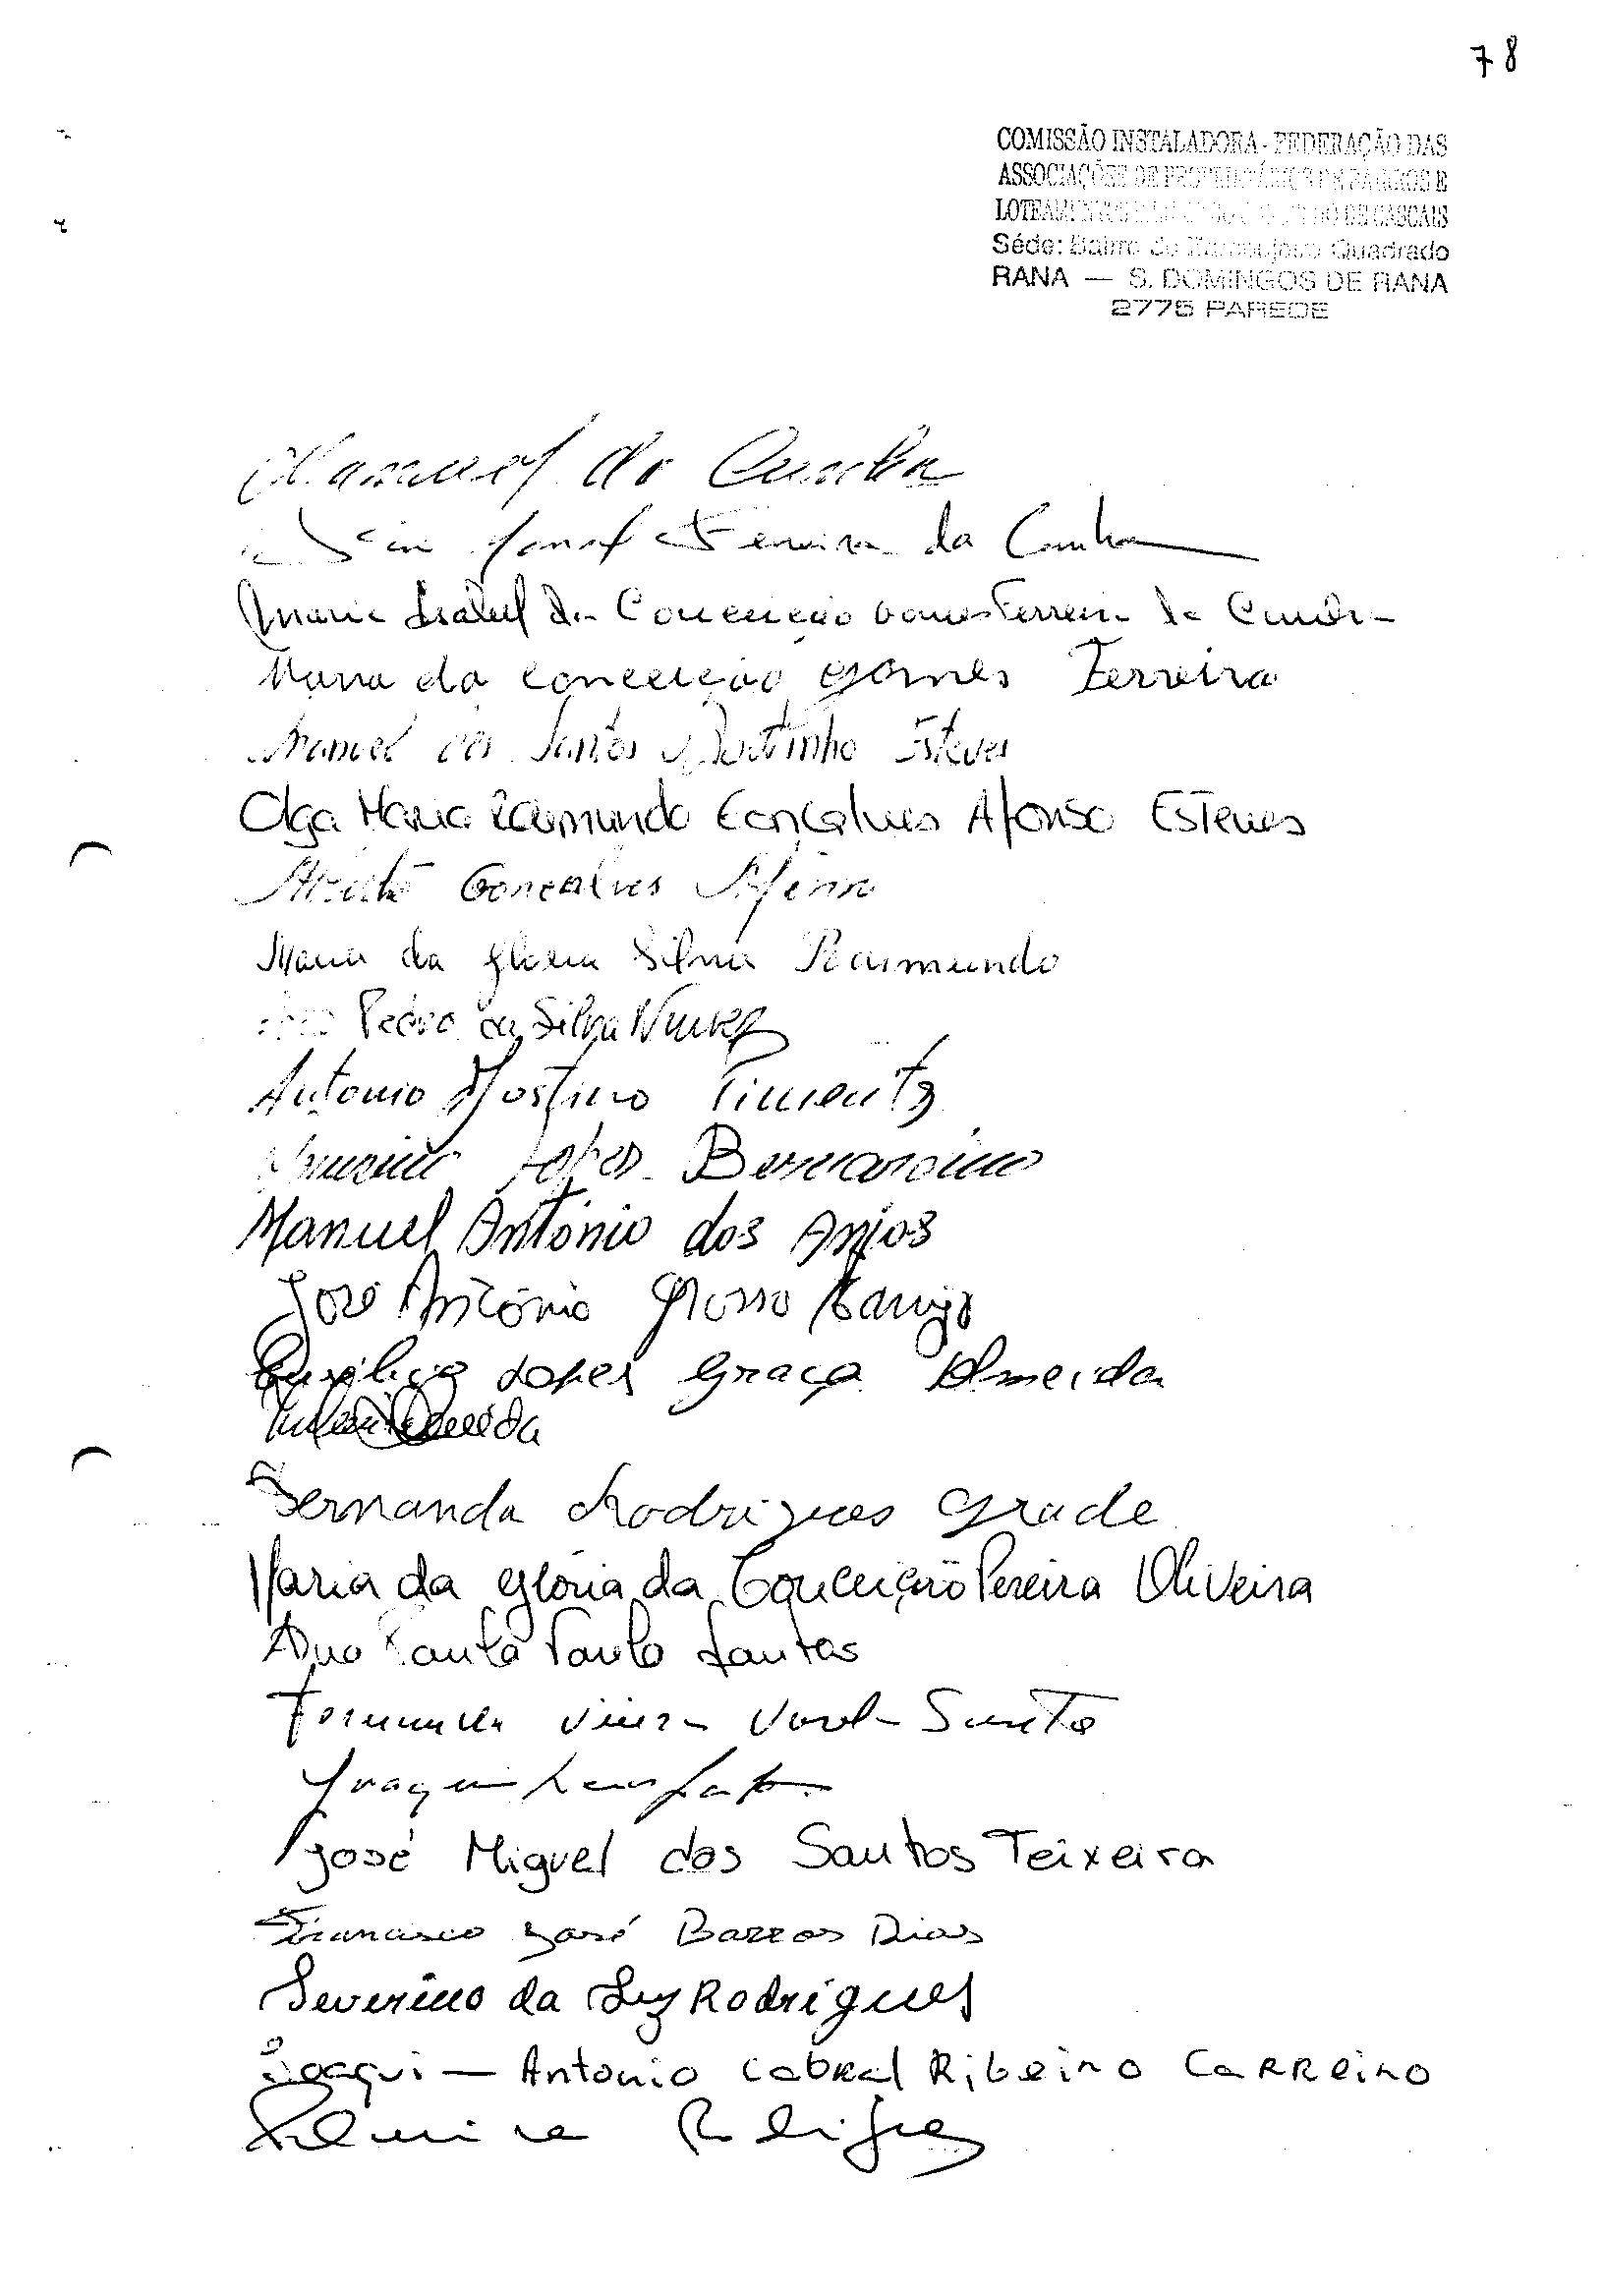 78
COMISSÃO INSTALADORA - FEDERAÇÃO DAS
ASSOCIAÇÕES DE PROPRIETÁRIOS DE BAIRROS E
LOTEAMENTOS DE CASCAIS
Séde: Bairro do Quadrado
RANA — S. DOMINGOS DE RANA
2775 PAREDE
Manuel da Cunha
Ferreira da Cunha
Maria Isabel da Conceição Gomes Ferreira da Cunha
Maria da Conceição Gomes Ferreira
Manuel dos Santos Martinho Esteves
Olga Maria Raimundo Gonçalves Afonso Esteves
Gonçalves Afonso
Maria da Gloria Silva Raimundo
Pedro da Silva Nunes
Antonio Pimenta
Lopes Bernardino
Manuel António dos Anjos
José António Grosso
Lopes Graça Almeida
Almeida
Fernanda Rodrigues Grade
Maria da Glória da Conceição Pereira Oliveira
Ana Paula Paulo Santos
Vieira
Joaquim
José Miguel dos Santos Teixeira
Francisco José Barros Dias
Severino da Luz Rodrigues
Joaqui— Antonio Cabral Ribeiro Carreiro
Palmira Rodrigues